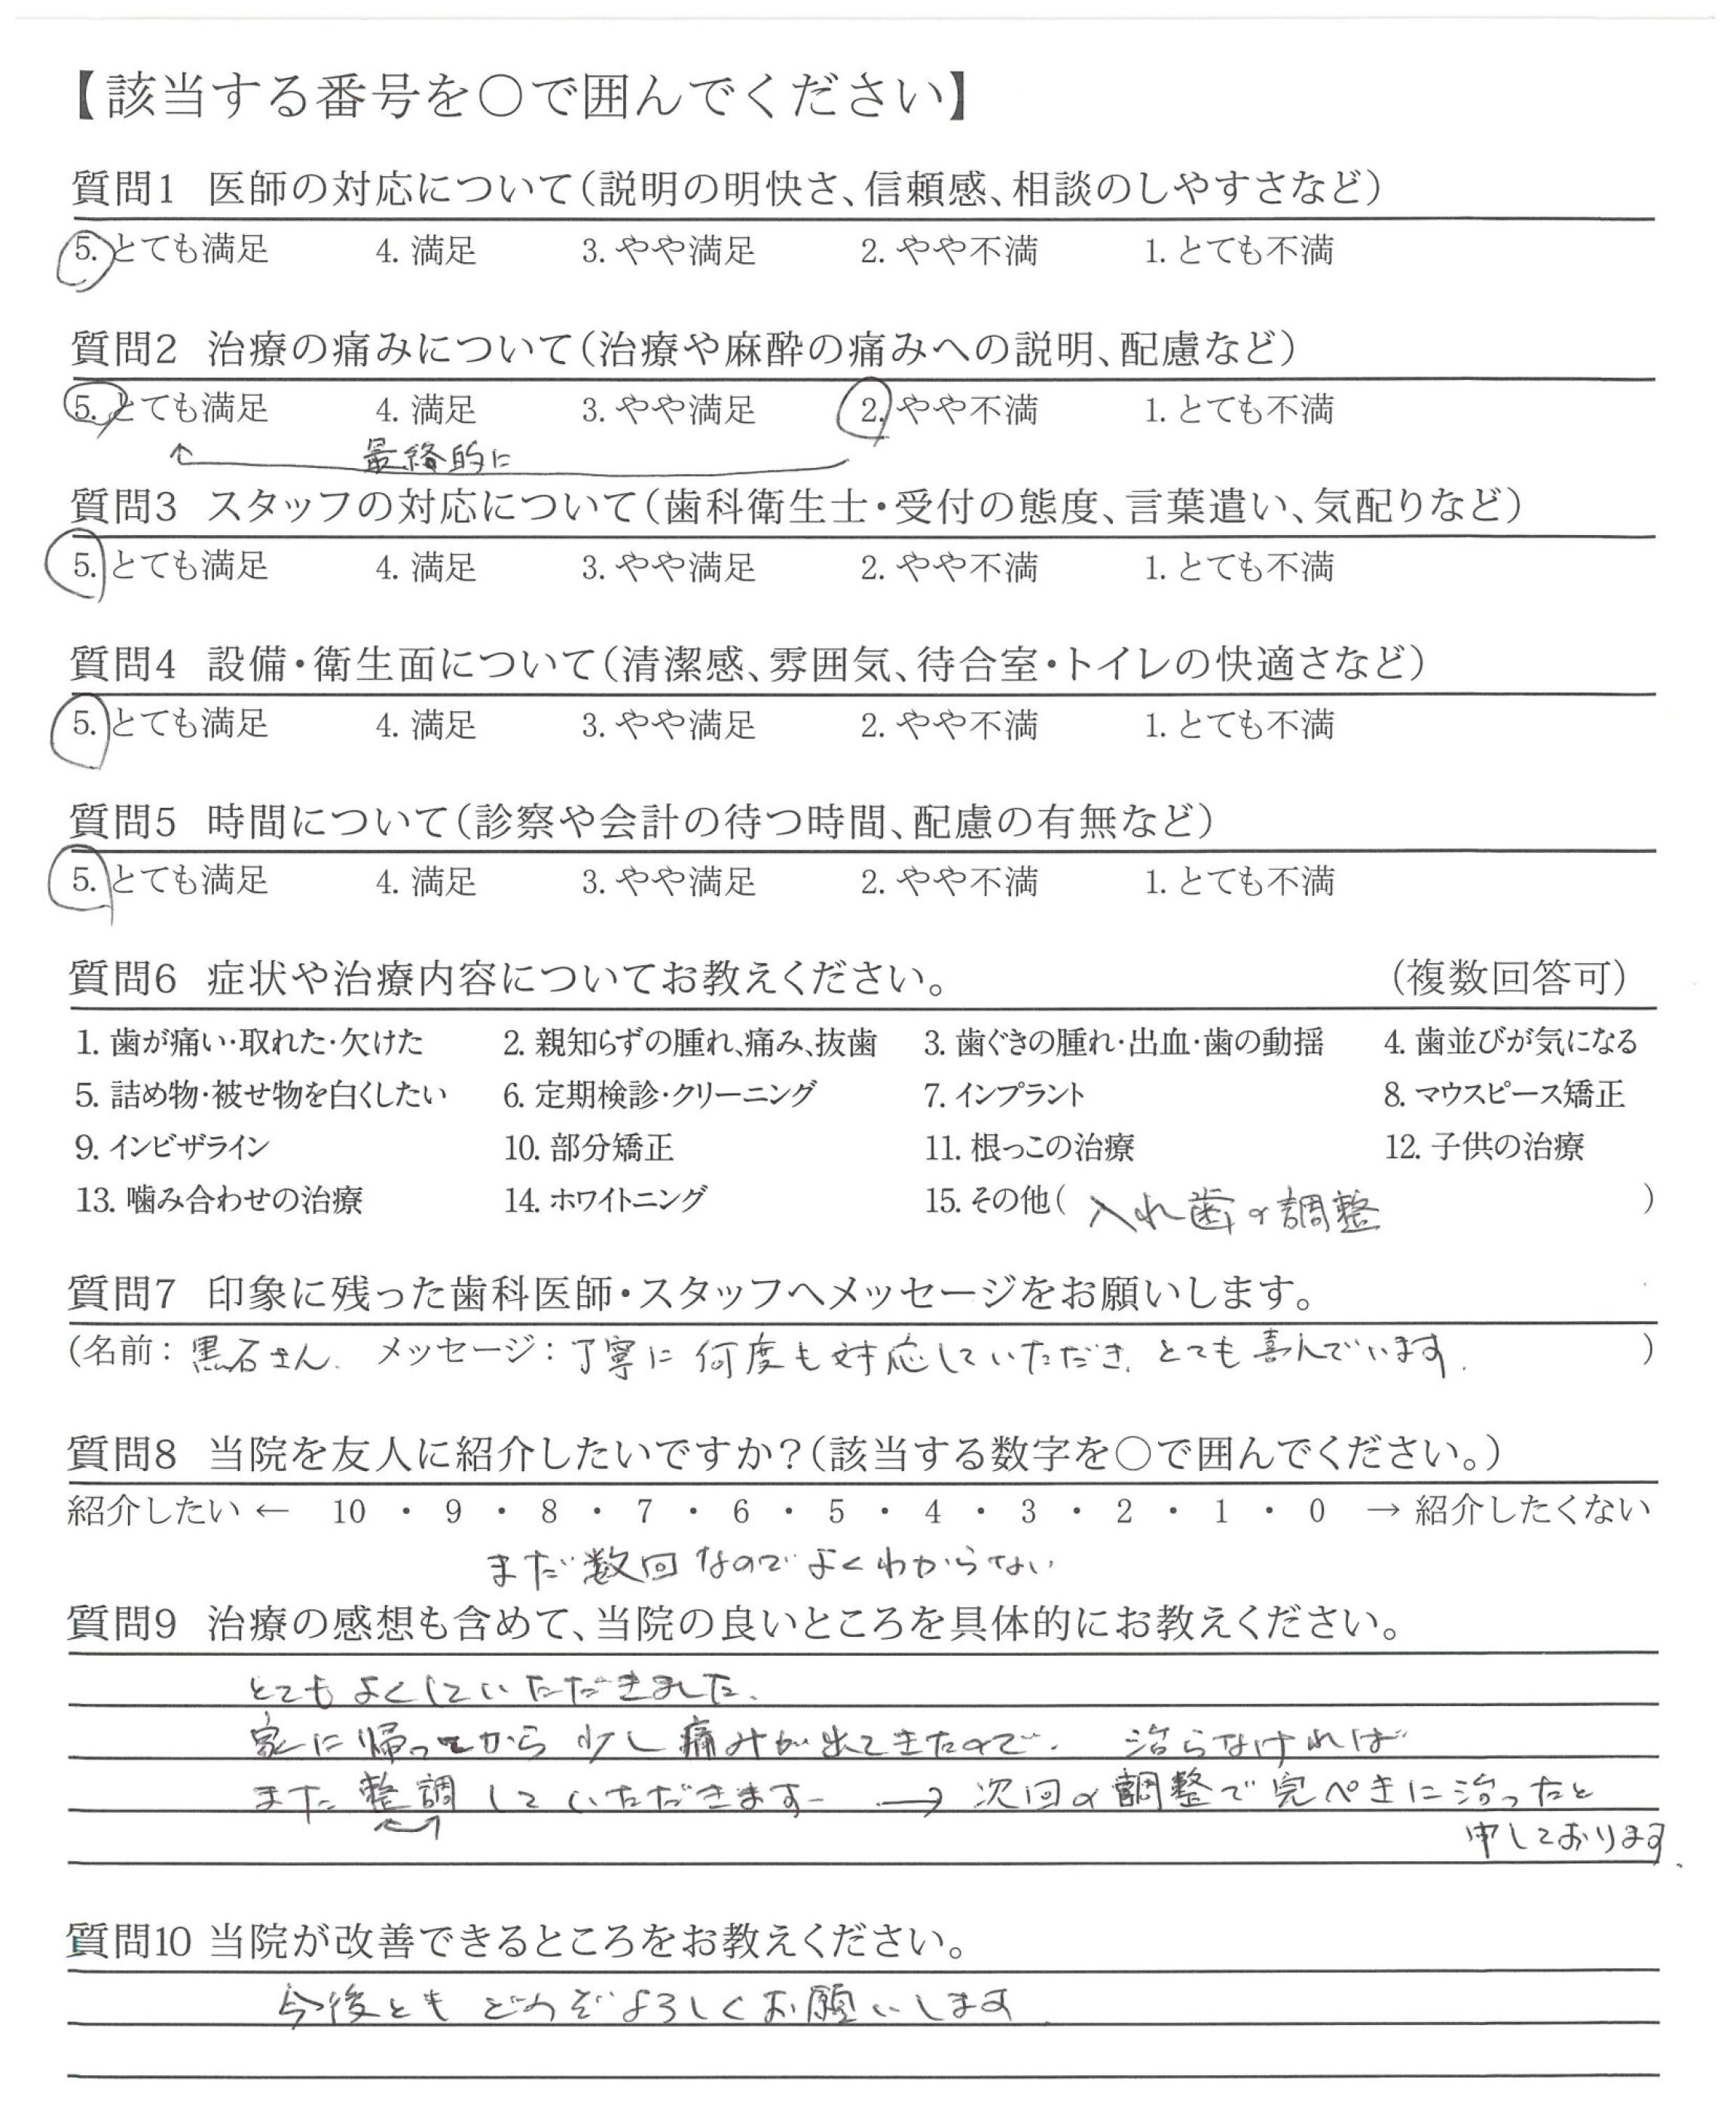 【該当する番号を○で囲んでください】
質問1 医師の対応について(説明の明快さ、信頼感、相談のしやすさなど)
5. とても満足 4. 満足 3. やや満足 2. やや不満 1. とても不満
質問2 治療の痛みについて(治療や麻酔の痛みへの説明、配慮など)
5. とても満足 4. 満足 3. やや満足 2. やや不満 1. とても不満
最終的に
質問3 スタッフの対応について(歯科衛生士・受付の態度、言葉遣い、気配りなど)
5. とても満足 4. 満足 3. やや満足 2. やや不満 1. とても不満
質問4 設備・衛生面について(清潔感、雰囲気、待合室・トイレの快適さなど)
5. とても満足 4. 満足 3. やや満足 2. やや不満 1. とても不満
質問5 時間について(診察や会計の待つ時間、配慮の有無など)
5. とても満足 4. 満足 3. やや満足 2. やや不満 1. とても不満
質問6 症状や治療内容についてお教えください。 (複数回答可)
1. 歯が痛い・取れた・欠けた 2. 親知らずの腫れ、痛み、抜歯 3. 歯ぐきの腫れ・出血・歯の動揺 4. 歯並びが気になる
5. 詰め物・被せ物を白くしたい 6. 定期検診・クリーニング 7. インプラント 8. マウスピース矯正
9. インビザライン 10. 部分矯正 11. 根っこの治療 12. 子供の治療
13. 噛み合わせの治療 14. ホワイトニング 15. その他( 入れ歯の調整 )
質問7 印象に残った歯科医師・スタッフへメッセージをお願いします。
(名前: 黒石さん. メッセージ: 丁寧に何度も対応していただき、とても喜んでいます. )
質問8 当院を友人に紹介したいですか?(該当する数字を○で囲んでください。)
紹介したい ← 10 ・ 9 ・ 8 ・ 7 ・ 6 ・ 5 ・ 4 ・ 3 ・ 2 ・ 1 ・ 0 → 紹介したくない
まだ数回なのでよくわからない
質問9 治療の感想も含めて、当院の良いところを具体的にお教えください。
とてもよくしていただきました.
家に帰ってから少し痛みが出てきたので、治らなければ
また整調していただきます → 次回の調整で完ぺきに治ったと
申しております.
質問10 当院が改善できるところをお教えください。
今後ともどうぞよろしくお願いします.